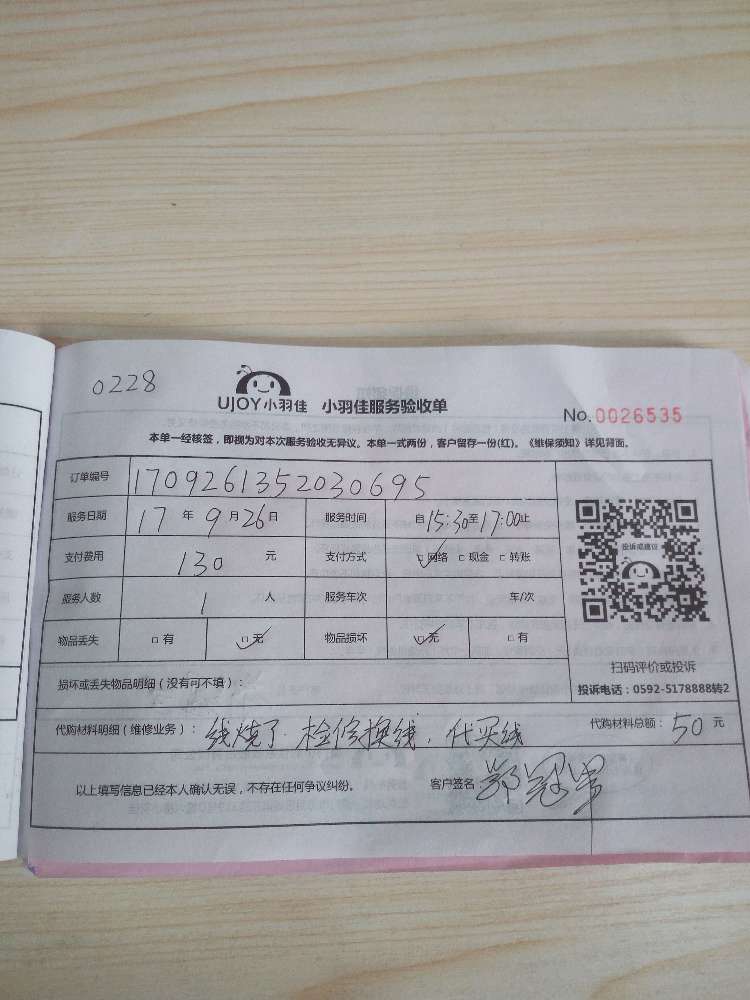 0228
UJOY小羽佳 小羽佳服务验收单
No. 0026535
本单一经核签，即视为对本次服务验收无异议。本单一式两份，客户留存一份(红)。《维保须知》详见背面。
订单编号 1709261352030695
服务日期 17 年 9 月 26 日 服务时间 自 15:30 至 17:00 止
支付费用 130 元 支付方式 ☑网络 □现金 □转账
服务人数 1 人 服务车次 车/次
物品丢失 □有 ☑无 物品损坏 ☑无 □有
投诉或建议
扫码评价或投诉
投诉电话：0592-5178888转2
损坏或丢失物品明细（没有可不填）：
代购材料明细（维修业务）： 线烧了.检修换线.代买线 代购材料总额： 50 元
以上填写信息已经本人确认无误，不存在任何争议纠纷。 客户签名